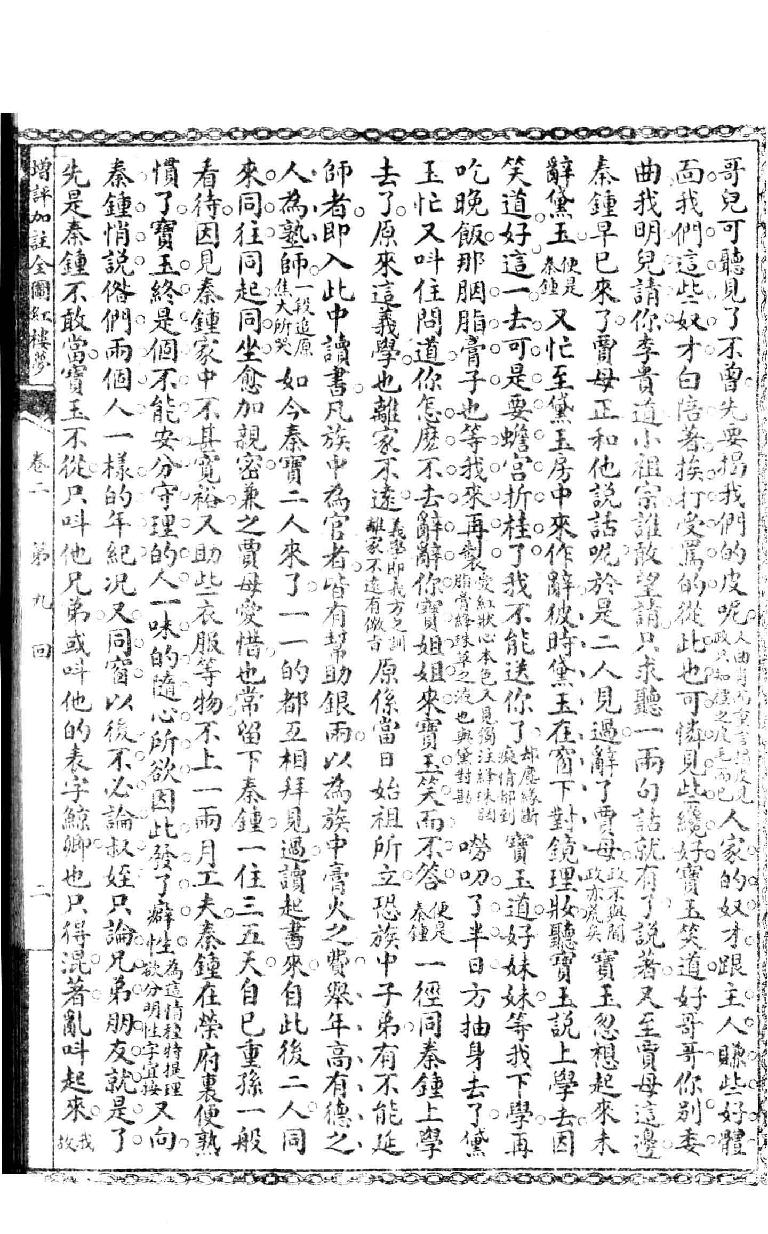 哥兒可聽見了不曾先要揭我們的皮呢人家的奴才跟主人賺些好體
面我們這些奴才白陪著挨打受罵的從此也可憐見些纔好寶玉笑道好哥哥你別委
曲我明兒請你李貴道小祖宗誰敢望請只求聽一兩句話就有了說著又至賈母這邊
秦鍾早已來了賈母正和他說話呢於是二人見過辭了賈母政不與聞政亦荒矣寶玉忽想起來未
辭黛玉便是秦鍾又忙至黛玉房中來作辭彼時黛玉在窗下對鏡理妝聽寶玉說上學去因
笑道好這一去可是要蟾宮折桂了我不能送你了寶玉道好妹妹等我下學再
吃晚飯那胭脂膏子也等我來再製嘮叨了半日方抽身去了黛
玉忙又呌住問道你怎麽不去辭辭你寶姐姐來寶玉笑而不答便是秦鍾一徑同秦鍾上學
去了原來這義學也離家不遠義塾即義方之訓離家不遠有微旨原係當日始祖所立恐族中子弟有不能延
師者即入此中讀書凡族中為官者皆有幫助銀兩以為族中膏火之費舉年高有德之
人為塾師一段追原焦大所哭如今秦寶二人來了一一的都互相拜見過讀起書來自此後二人同
來同往同起同坐愈加親密兼之賈母愛惜也常留下秦鍾一住三五天自己重孫一般
看待因見秦鍾家中不甚寬裕又助些衣服等物不上一兩月工夫秦鍾在榮府裏便熟
慣了寶玉終是個不能安分守理的人一味的隨心所欲因此發了癖性為這情種特提理欲分明性字宜接又向
秦鍾悄說偺們兩個人一樣的年紀况又同窗以後不必論叔姪只論兄弟朋友就是了
先是秦鍾不敢當寶玉不從只呌他兄弟或呌他的表字鯨卿也只得混著亂呌起來我故
增評加註全圖紅樓夢
卷二
第九回
二